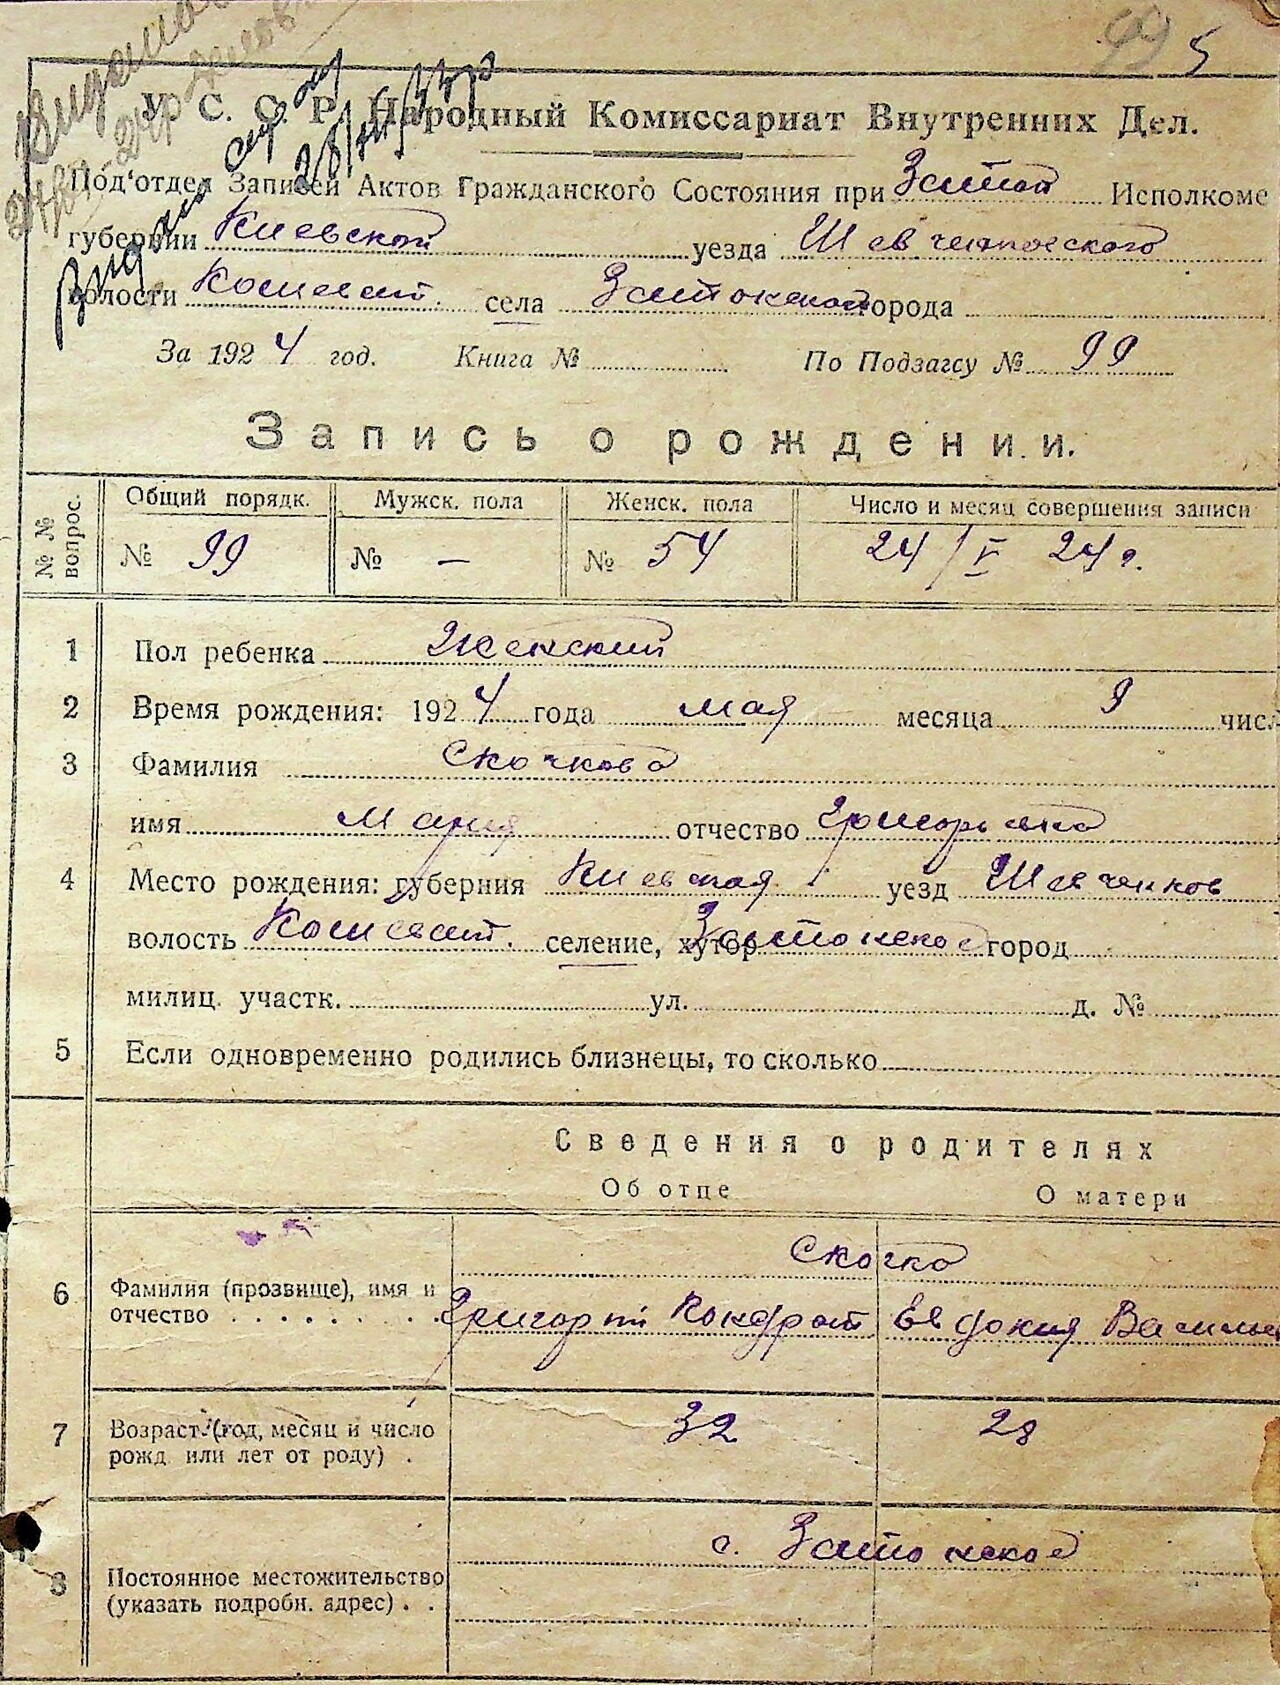 99 5
У. С. С. Р. Народный Комиссариат Внутренних Дел.
Под'отдел Записей Актов Гражданского Состояния при Исполкоме
губернии Киевской уезда Шевченковского
волости села города
За 1924 год. Книга № По Подзагсу № 99
Запись о рождении.
№ № вопрос. Общий порядк. Мужск. пола Женск. пола Число и месяц совершения записи
№ 99 № — № 54 24/V 24 г.
1 Пол ребенка Женский
2 Время рождения: 1924 года мая месяца 9 числ
3 Фамилия Скочково
имя Мария отчество Григорьевна
4 Место рождения: губерния Киевская уезд Шевченков
волость селение, хутор город
милиц. участк. ул. д. №
5 Если одновременно родились близнецы, то сколько
Сведения о родителях
Об отце О матери
Скочко
6 Фамилия (прозвище), имя и
отчество Григорий Кондрат Евдокия Василье
7 Возраст (год, месяц и число 32 28
рожд. или лет от роду)
с.
8 Постоянное местожительство
(указать подробн. адрес)